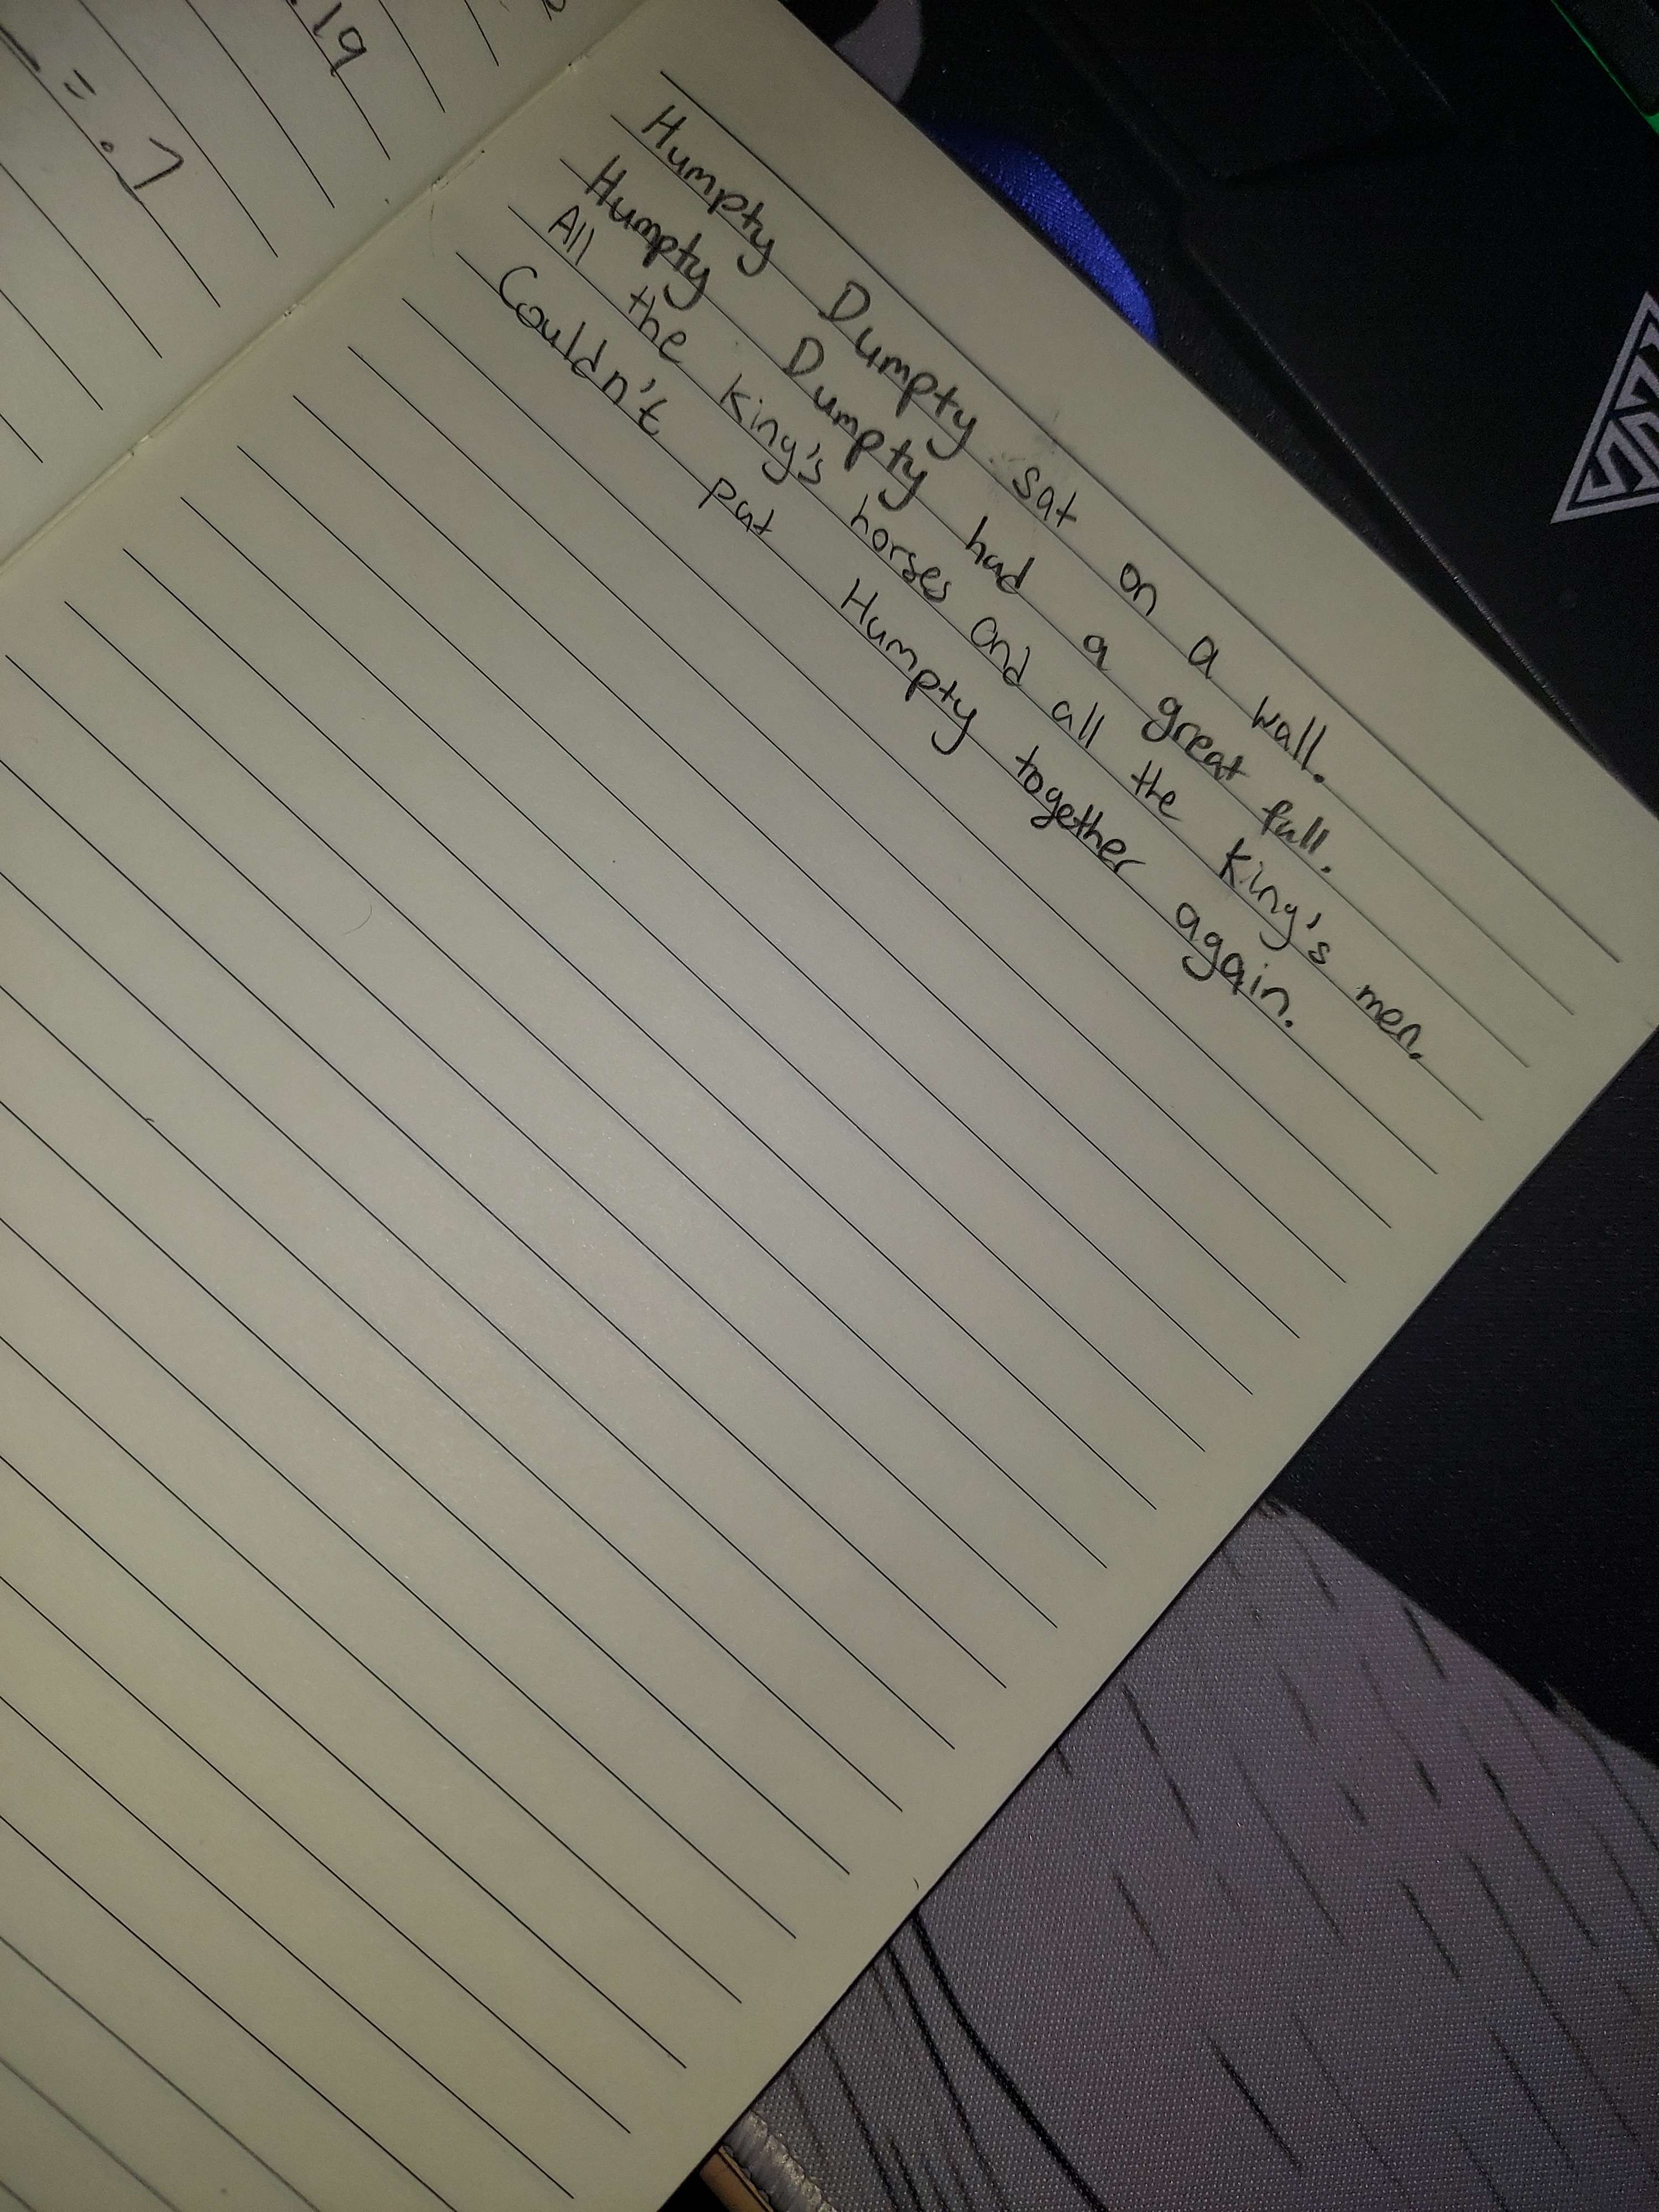 .19
= .7
Humpty Dumpty sat on a wall.
Humpty Dumpty had a great fall.
All the king's horses and all the king's men.
Couldn't put Humpty together again.